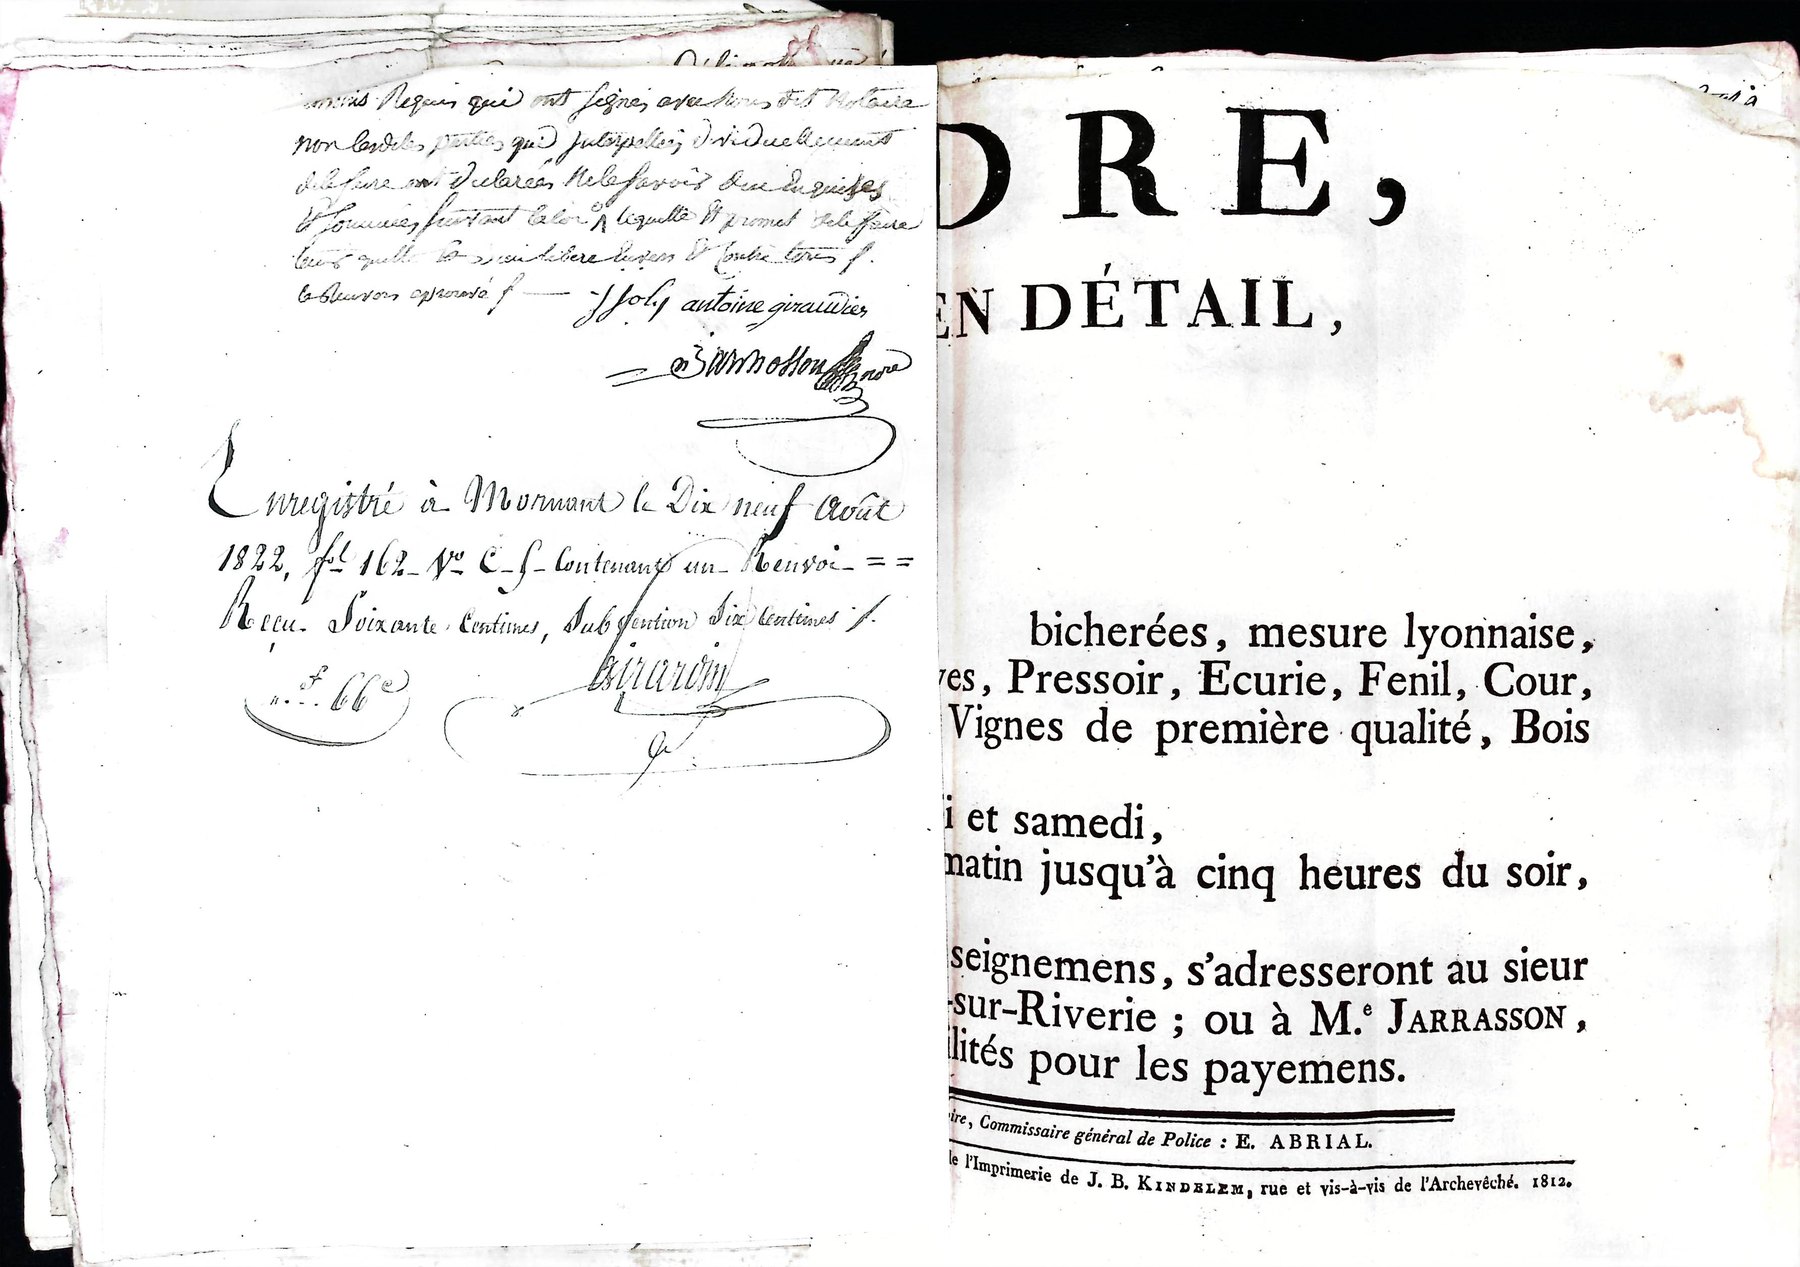 témoins Requis qui ont signés avec nous dit Notaire
non lesdites parties qui Interpellés individuellement
de le faire ont déclarées Ne le savoir de ce Enquises
& Sommées suivant la loi laquelle Et promet de le faire
Envers Et Contre tous
le Renvoi approuvé
J Joly antoine giraudier
Enregistré à Mornant le Dix neuf Août
1822, fol 162 Vo C. 5 Contenant un Renvoi = =
Reçu Soixante Centimes, Subvention Six Centimes
66c
Girardin
DRE,
EN DÉTAIL,
bicherées, mesure lyonnaise,
ves, Pressoir, Ecurie, Fenil, Cour,
Vignes de première qualité, Bois
i et samedi,
matin jusqu'à cinq heures du soir,
seignemens, s'adresseront au sieur
-sur-Riverie ; ou à M.e JARRASSON,
ilités pour les payemens.
ire, Commissaire général de Police : E. ABRIAL.
de l'Imprimerie de J. B. KINDELEM, rue et vis-à-vis de l'Archevêché. 1812.